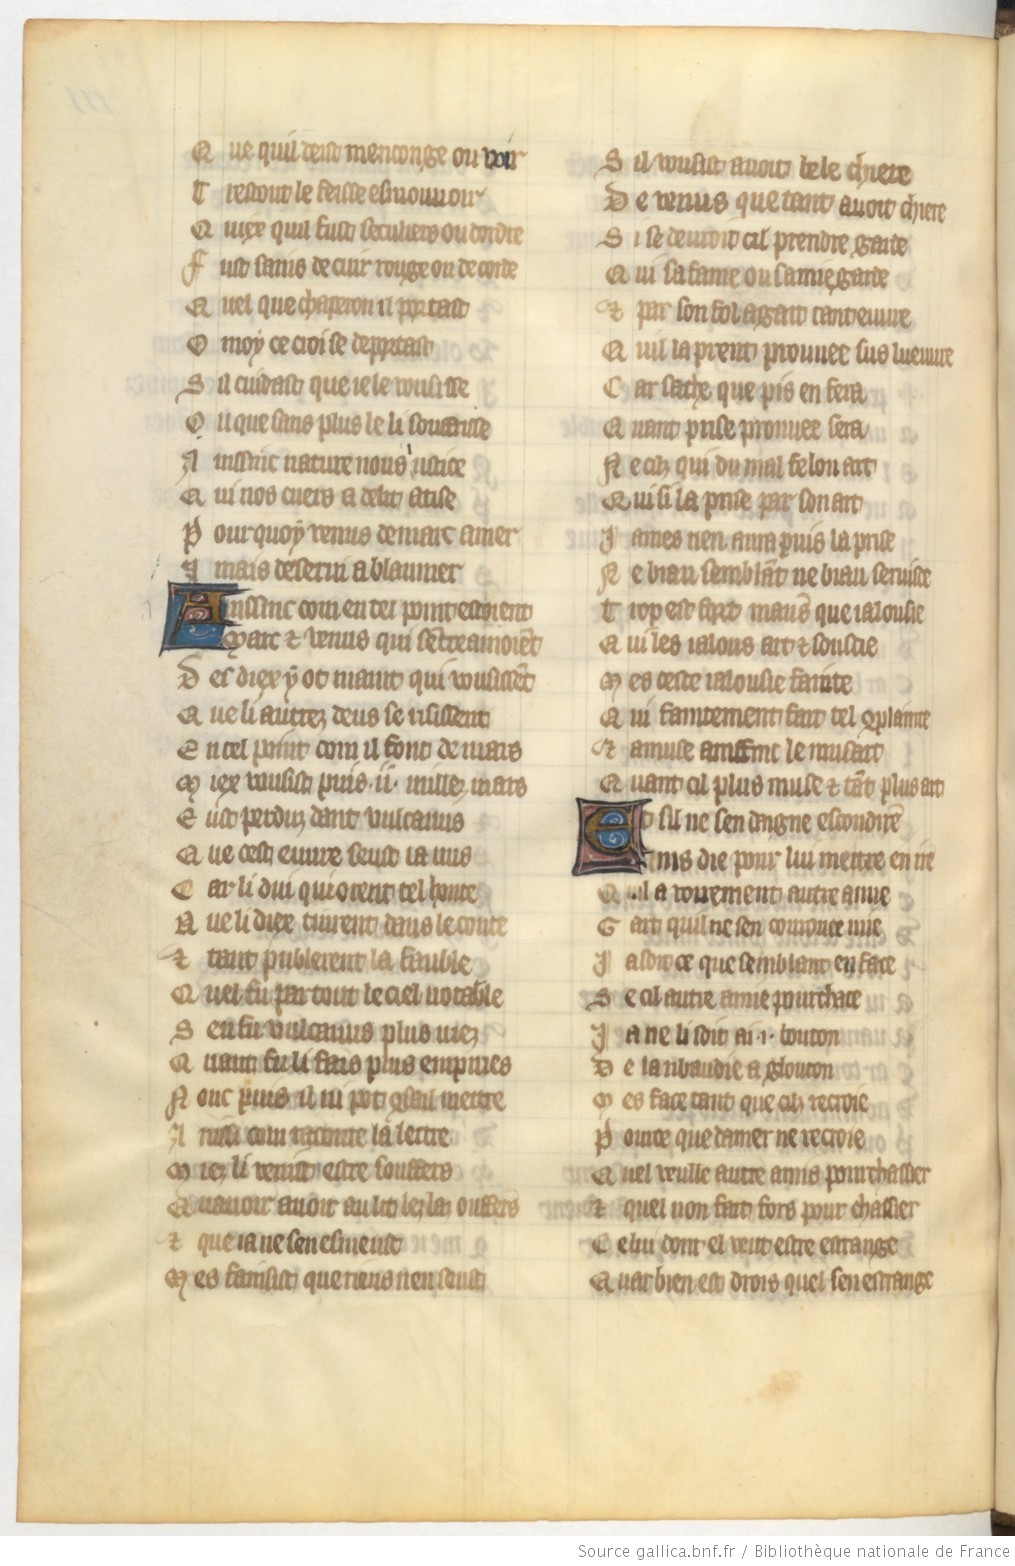 Que quil deist menconge ou voir
Trestout le feisse esmouvoir
Quiex quil fust seculiers ou dordre
Fust sains de cuir rouge ou de corde
Quel que chaperon il portast
O moy ce croi se deportast
Sil cuidast que ie le vousisse
Ou que sans plus le li souffrisse
Ainssinc nature nous iustice
Qui nos cuers a delit atise
Pour quoy venus de marc amer
I mais deservi a blasmer
Ainssinc com en tel point estoient
Marc et venus qui sentreamoient
Des diex y ot maint qui vousissent
Que li autrez deus se risissent
En tel point com il font de mars
Miex vousist puis .ii. millez mars
Eust perduz dant vulcanus
Que cest euvre seust ia nus
Car li dui qui orent tel honte
Que li diex tinrent dans le conte
Et tant publierent la fauble
Quel fu par tout le ciel notable
Sen fu vulcanus plus iriez
Quant fu li fais plus empiries
Nonc puis il ni pot conseil mettre
Ainssi com raconte la lettre
Miez li venist estre souffers
Quavoir
Et que ia ne sen esmeust
Mes fainsist que riens nen seust
Sil vousist avoir bele chiere
De venus que tant avoit chiere
Si se devroit cil prendre garde
Qui sa fame ou samie garde
Et par son fol agait tant euvre
Quil la prent prouvee sus luevvre
Car sache que pis en fera
Quant prise prouvee sera
Ne cilz qui du mal felon art
Qui si la prise par son art
Iames rien aura puis la prise
Ne biau semblant ne biau servise
Trop est fort maus que ialousie
Qui les ialous art et soussie
Mes ceste ialousie fainte
Qui faintement fait tel complainte
Et amuse ainssinc le musart
Quant cil plus muse et tant plus art
Et sil ne sen daigne escondire
Ains die pour lui mettre en ire
Quil a voirement autre amie
Gart quil ne sen courouce mie
Ia soit ce que semblant en face
Se cil autre amie pourchace
Ia ne li soit ai .i. bouton
De la ribaudie a glouton
Mes face tant que cilz recroie
Pource que damer ne recroie
Quel veulle autre amis pourchassier
Et quel non fait fors pour chassier
Celui dont el veut estre estrange
Quar bien est drois quel sen estrange
Source gallica.bnf.fr / Bibliothèque nationale de France